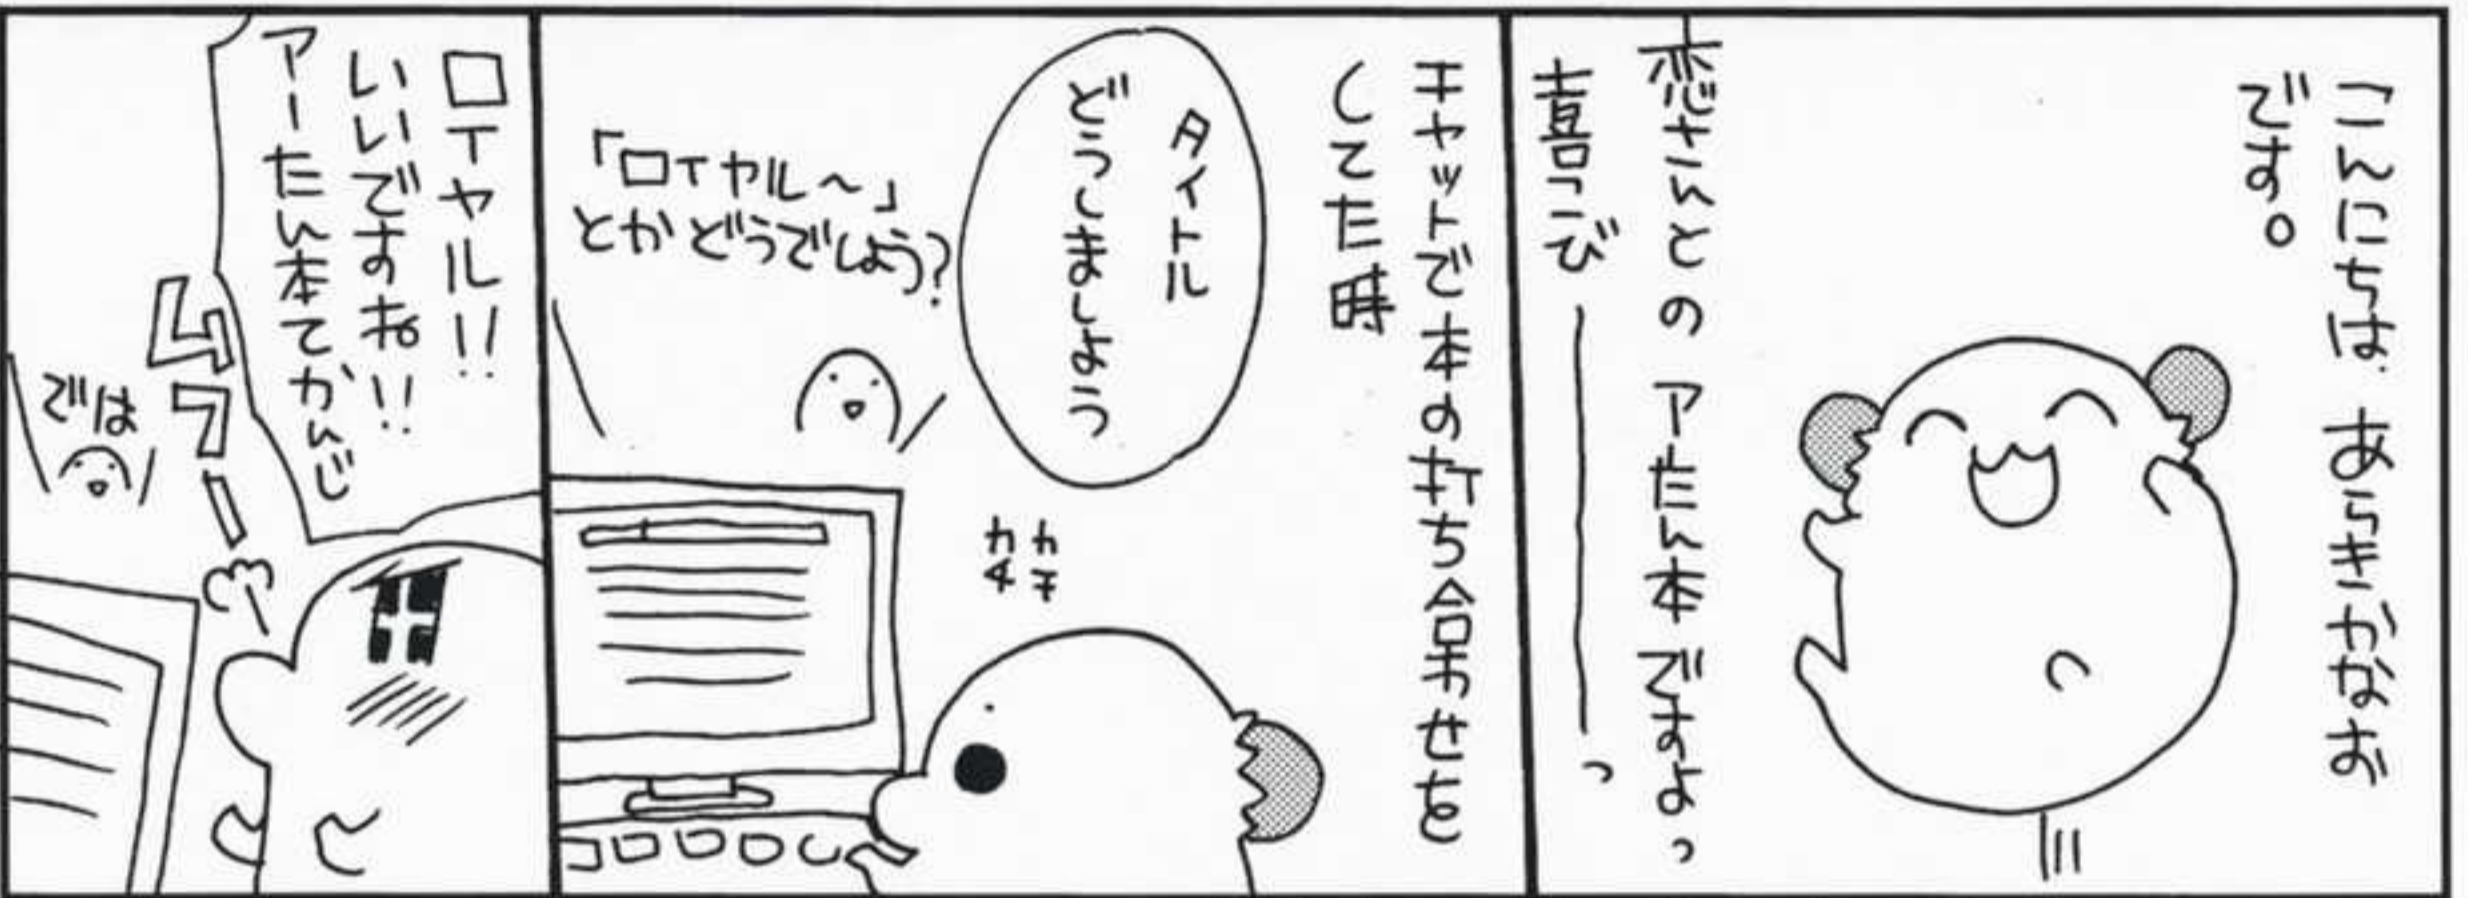 こんにちは、あらきかなお
です。
恋さんとのアたん本ですよっ
喜び―――っ
チャットで本の打ち合わせを
してた時
タイトル
どうしましょう
「ロイヤル～」
とかどうでしょう?
カチ
カタ
ロイヤル!!
いいですね!!
アーたん本てかんじ
ムフー
では